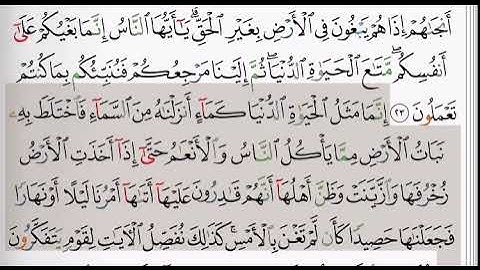 أَنجَىٰهُمْ إِذَا هُمْ يَبْغُونَ فِى ٱلْأَرْضِ بِغَيْرِ ٱلْحَقِّ ۗ يَـٰٓأَيُّهَا ٱلنَّاسُ إِنَّمَا بَغْيُكُمْ عَلَىٰٓ
أَنفُسِكُم ۖ مَّتَـٰعَ ٱلْحَيَوٰةِ ٱلدُّنْيَا ۖ ثُمَّ إِلَيْنَا مَرْجِعُكُمْ فَنُنَبِّئُكُم بِمَا كُنتُمْ
تَعْمَلُونَ ٢٣ إِنَّمَا مَثَلُ ٱلْحَيَوٰةِ ٱلدُّنْيَا كَمَآءٍ أَنزَلْنَـٰهُ مِنَ ٱلسَّمَآءِ فَٱخْتَلَطَ بِهِۦ
نَبَاتُ ٱلْأَرْضِ مِمَّا يَأْكُلُ ٱلنَّاسُ وَٱلْأَنْعَـٰمُ حَتَّىٰٓ إِذَآ أَخَذَتِ ٱلْأَرْضُ
زُخْرُفَهَا وَٱزَّيَّنَتْ وَظَنَّ أَهْلُهَآ أَنَّهُمْ قَـٰدِرُونَ عَلَيْهَآ أَتَىٰهَآ أَمْرُنَا لَيْلًا أَوْ نَهَارًا
فَجَعَلْنَـٰهَا حَصِيدًا كَأَن لَّمْ تَغْنَ بِٱلْأَمْسِ ۚ كَذَٰلِكَ نُفَصِّلُ ٱلْـَٔايَـٰتِ لِقَوْمٍ يَتَفَكَّرُونَ